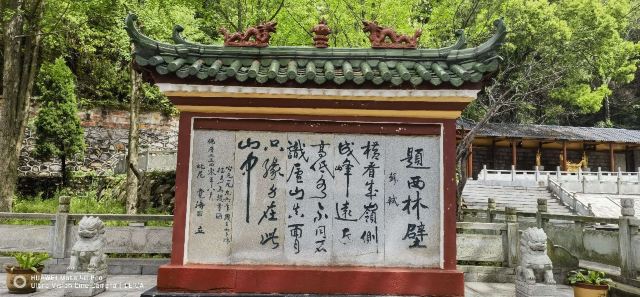 題西林壁
蘇軾
橫看成嶺側
成峰遠近
高低各不同不
識廬山真面目
只緣身在此
山中
HUAWEI Mate 40 Pro
Ultra Vision Cine Camera | LEICA